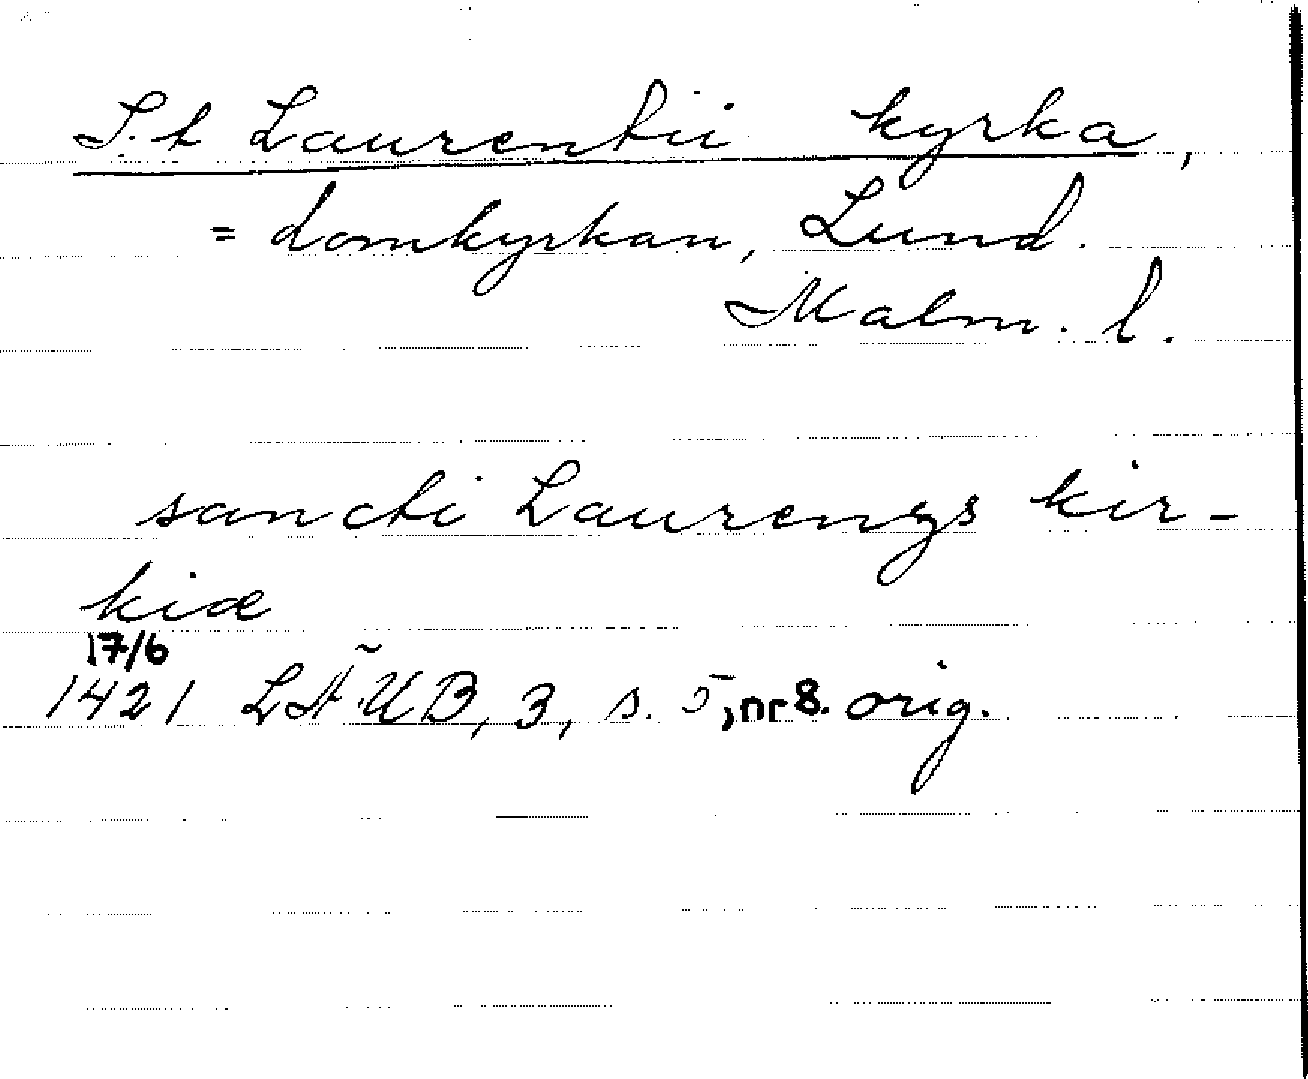 S.t Laurentii kyrka,
= domkyrkan, Lund.
Malm. l.
sancti Laurengs kir-
kiæ
17/6
1421 LÄUB, 3, s. 5, nr 8. orig.